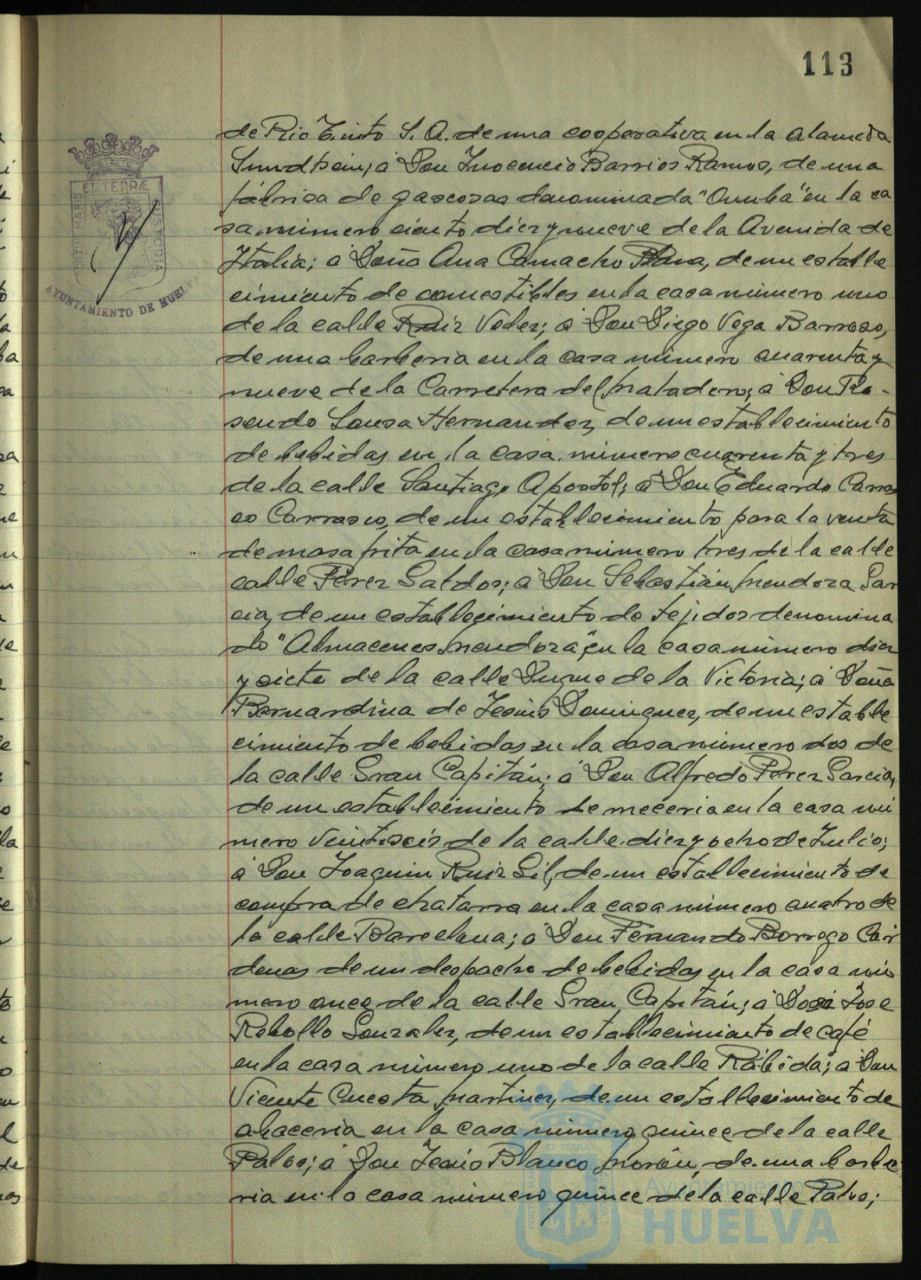 113
PORTUS MARIS ET TERRÆ CUSTODIA
AYUNTAMIENTO DE HUELVA
de Rio Tinto S. A. de una cooperativa en la Alameda
Sundhein; á Don Inocencio Barrios Ramos, de una
fábrica de gaseosas denominada "Onuba" en la ca
sa número ciento diez y nueve de la Avenida de
Italia; á Doña Ana Camacho, de un estable
cimiento de comestibles en la casa número uno
de la calle Ruiz Velez; á Don Diego Vega Barroso,
de una barberia en la casa número cuarenta y
nueve de la Carretera del Matadero; á Don Ro-
sendo Sousa Hernandez, de un establecimiento
de bebidas en la casa número cuarenta y tres
de la calle Santiago Apostol; á Don Eduardo Carras
co Carrasco, de un establecimiento para la venta
de masa frita en la casa número tres de la calle
calle Pérez Galdos; á Don Sebastián Mendoza Gar
cia, de un establecimiento de tejidos denomina
do "Almacenes Mendoza", en la casa número diez
y siete de la calle Duque de la Victoria; á Doña
Bernardina de Jesús Dominguez, de un estable
cimiento de bebidas en la casa número dos de
la calle Gran Capitán; á Don Alfredo Perez Garcia,
de un establecimiento de meceria en la casa nú
mero veintiseis de la calle diez y ocho de Julio;
á Don Joaquin Ruiz Gil, de un establecimiento de
compra de chatarra en la casa número cuatro de
la calle Barcelona; á Don Fernando Borrego Cár
denas de un despacho de bebidas en la casa nú
mero once de la calle Gran Capitán; á José
Rebollo Gonzalez, de un establecimiento de café
en la casa número uno de la calle Rábida; á Don
Vicente Cuesta Martinez, de un establecimiento de
abaceria en la casa número quince de la calle
Palos; á Don Jesús Blanco Morón, de una barbe
ria en la casa número quince de la calle Palos;
Ayuntamiento de
HUELVA